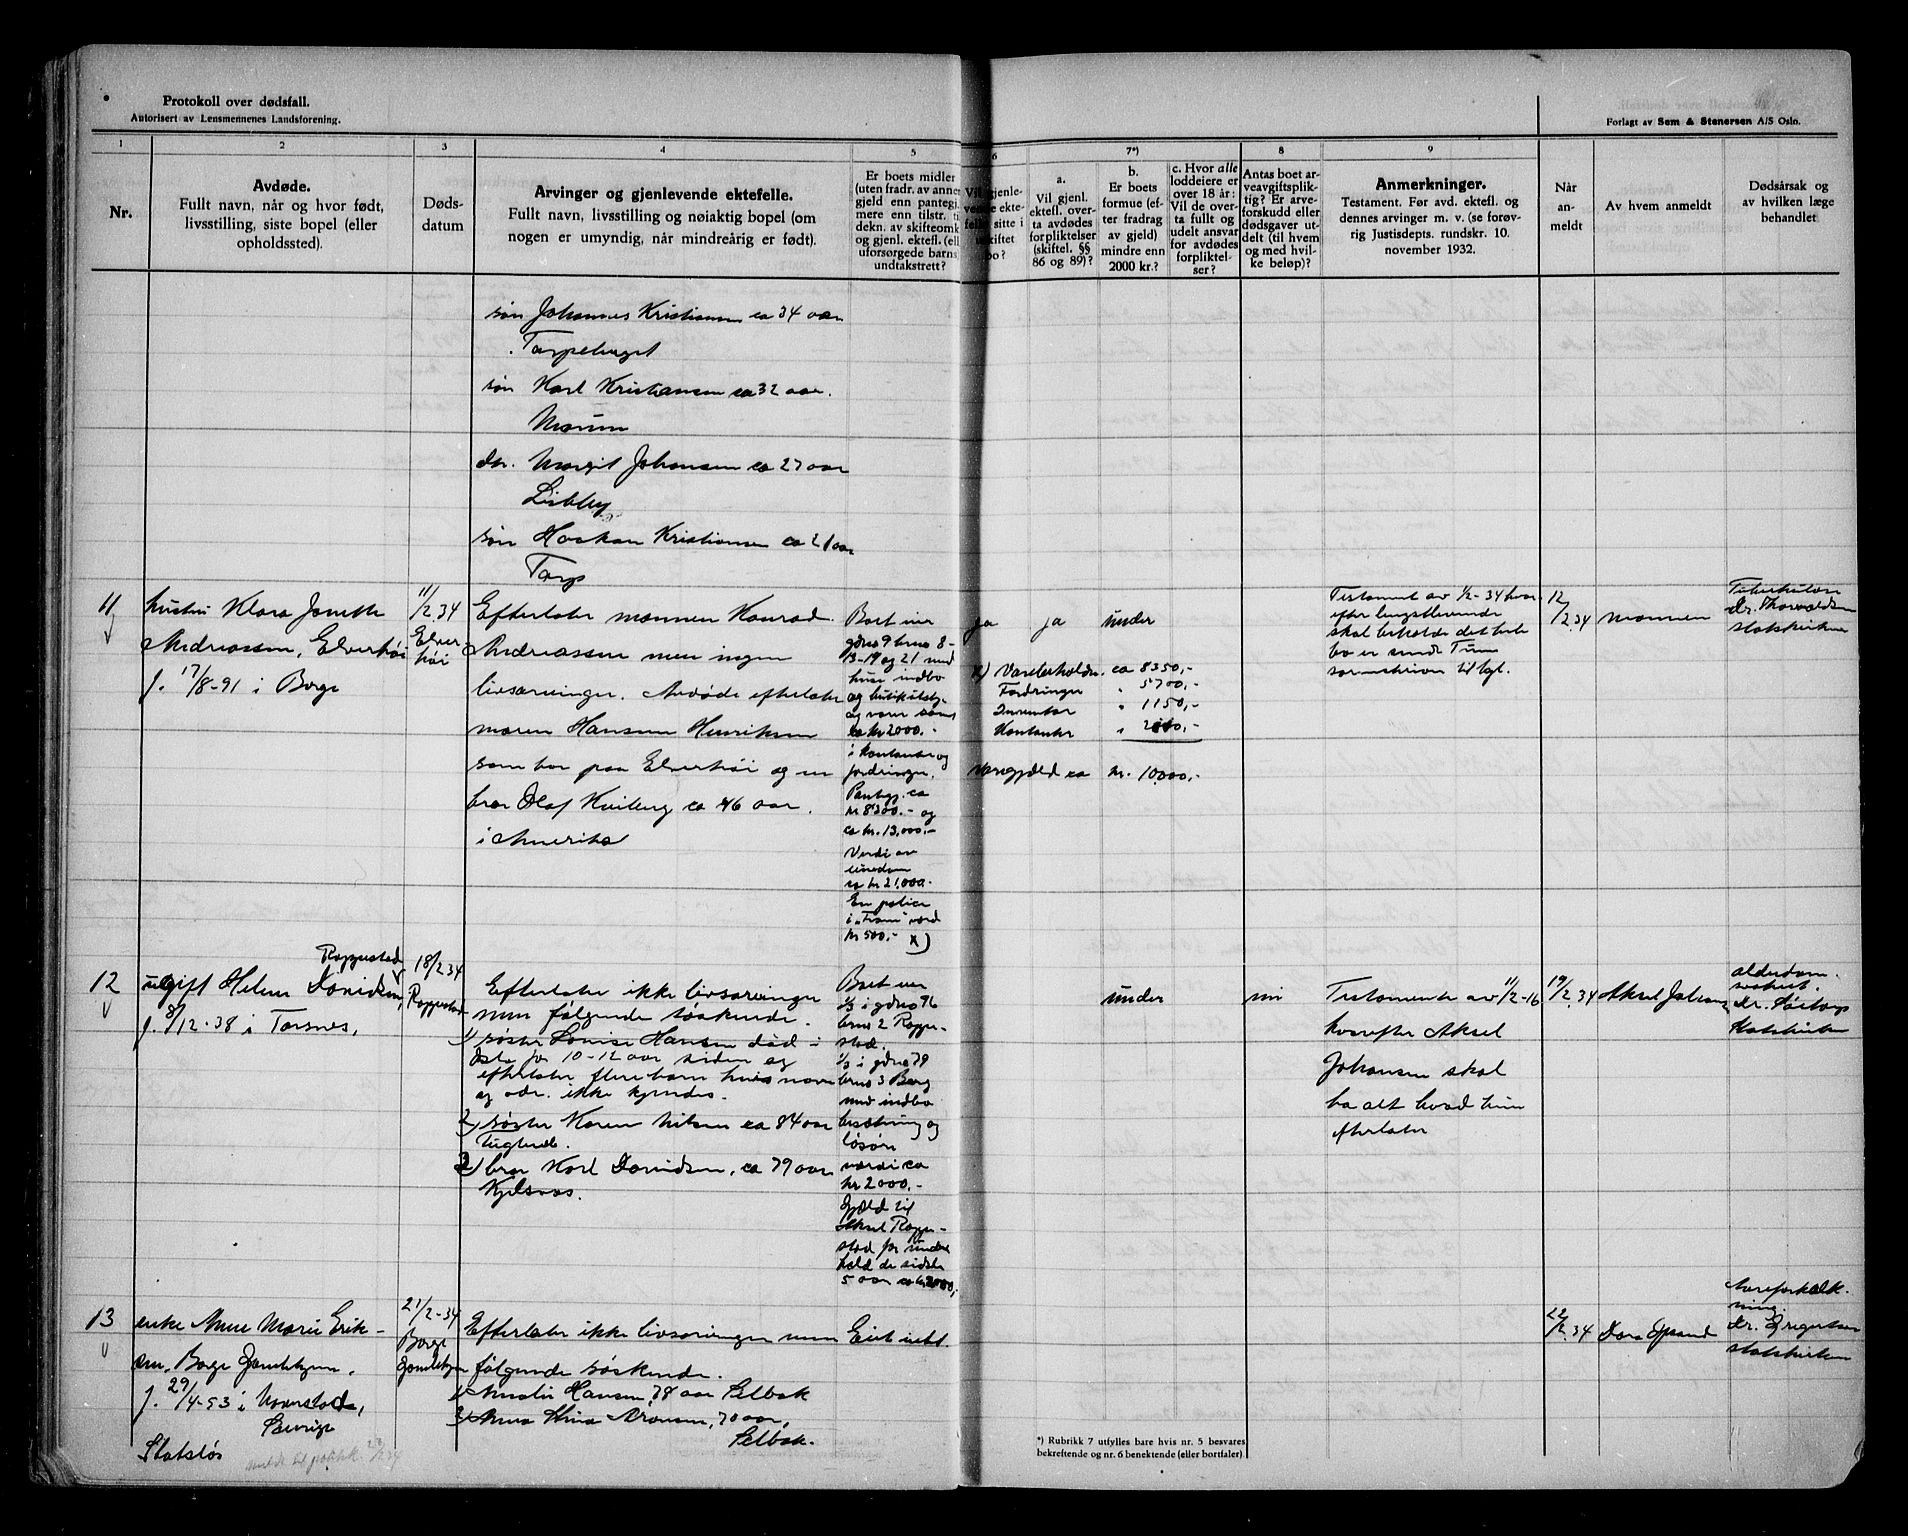 Protokoll over dødsfall.
Autorisert av Lensmennenes Landsforening.
Forlagt av Sem & Stenersen A/S Oslo.
1
2
3
4
5
6
7*)
8
9
Nr.
Avdøde.
Fullt navn, når og hvor født,
livsstilling, siste bopel (eller
opholdssted).
Døds-
datum
Arvinger og gjenlevende ektefelle.
Fullt navn, livsstilling og nøiaktig bopel (om
nogen er umyndig, når mindreårig er født).
Er boets midler
(uten fradr. av annen
gjeld enn pantegj.
mere enn tilstr. ti
dekn. av skifteomk
og gjenl. ektefl. (ell
uforsørgede barns
undtakstrett?
Vil gjenle-
vende ekte-
felle sitte i
uskiftet
bo?
a.
Vil gjenl.
ektefl. over-
ta avdødes
forpliktelser
(skiftel. §§
86 og 89)?
b.
Er boets
formue (ef-
ter fradrag
av gjeld)
mindre enn
2000 kr.?
c. Hvor alle
loddeiere er
over 18 år:
Vil de over-
ta fullt og
udelt ansvar
for avdødes
forpliktel-
ser?
Antas boet ar-
veavgiftsplik-
tig? Er arve-
forskudd eller
dødsgaver ut-
delt (til hvem
og med hvil-
ke beløp)?
Anmerkninger.
Testament. Før avd. ektefl. og
dennes arvinger m. v. (se forøv-
rig Justisdepts. rundskr. 10.
november 1932.
Når
an-
meldt
Av hvem anmeldt
Dødsårsak og
av hvilken læge
behandlet
søn Johannes Kristiansen ca 34 aar
Torpehaget
søn Karl Kristiansen ca 32 aar.
Moum
dtr. Margit Johansen ca 27 aar
Lisleby
søn Haakan Kristiansen ca 21 aar
Torp
11
hustru Klara Janette
Andreassen, Elverhøi
f. 17/8-91 i Borge
11/2 34
Elver
høi
Efterlater mannen Konrad
Andreassen men ingen
livsarvinger. Avdøde efterlater
moren Hansine Henriksen
som bor paa Elverhøi og en
bror Olaf Kviberg ca 46 aar.
i Amerika
Boet eier
gdno 9 bno 8-
13-19 og 21 med
huse indbo
og butikutstyr
og varer samt
ca kr 2000.-
i kontanter og
fordringer.
Pantegj. ca
kr 8300.- og
ca kr. 13,000.-
Verdi av
eiendom
ca kr 21,000.-
En police
i "Fram" værd
kr 500,- x)
ja
ja
under
x) Varebeholdn. ca 8350,-
Fordringer " 5700,-
Inventar " 1150,-
Kontanter
Varegjæld ca kr. 10000,-
Testament av 1/2-34 hvor
efter lengstlevende
skal beholde det hele
bo er sendt Tune
sorenskriveri til tgl.
12/2 34
mannen
Tuberkulose
Dr. Thorvaldsen
statskirken
12
ugift Helene Davidsen,
Roppestad
f. 8/12-38 i Torsnes,
18/2 34
Roppestad
Efterlater ikke livsarvinger
men følgende søskende.
1) søster Lovise Hansen død i
Oslo for 10-12 aar siden og
efterlater flere barn hvis navn
og adr. ikke kjendes.
2) søster Karen Nilsen ca 84 aar
3) bror Karl Davidsen, ca 79 aar
Kjelsaas.
Boet eier
1/3 i gdno 96
bno 2 Roppe-
stad.
1/3 i gdno 79
bno 3 Berg
med indbo
besætning og
løsøre
værdi ca
kr 2000,-
Gjæld til
Aksel Roppe-
stad for under
hold de sidste
5 aar ca kr 2000,-
under
nei
Testamente av 11/2-16
hvorefter Aksel
Johansen skal
ha alt hvad hun
efterlater
19/2 34
Aksel Johansen
alderdom-
svakhet.
statskirken
13
enke Anne Marie Erik-
sen, Borge Gamlehjem,
f. 29/4-53 i
Sverige
Statsløs
21/2-34
Borge
Gamlehjem
Efterlater ikke livsarvinger men
følgende søskende.
1) Amalie Hansen, 78 aar Selbak
2) Anna Stina Aronsen, 70 aar,
Selbak.
Eiet intet.
22/2 34
Dora
Aareforkalk-
ning
Dr. Gregertsen
statskirken
*) Rubrikk 7 utfylles bare hvis nr. 5 besvares
bekreftende og nr. 6 benektende (eller bortfaler)